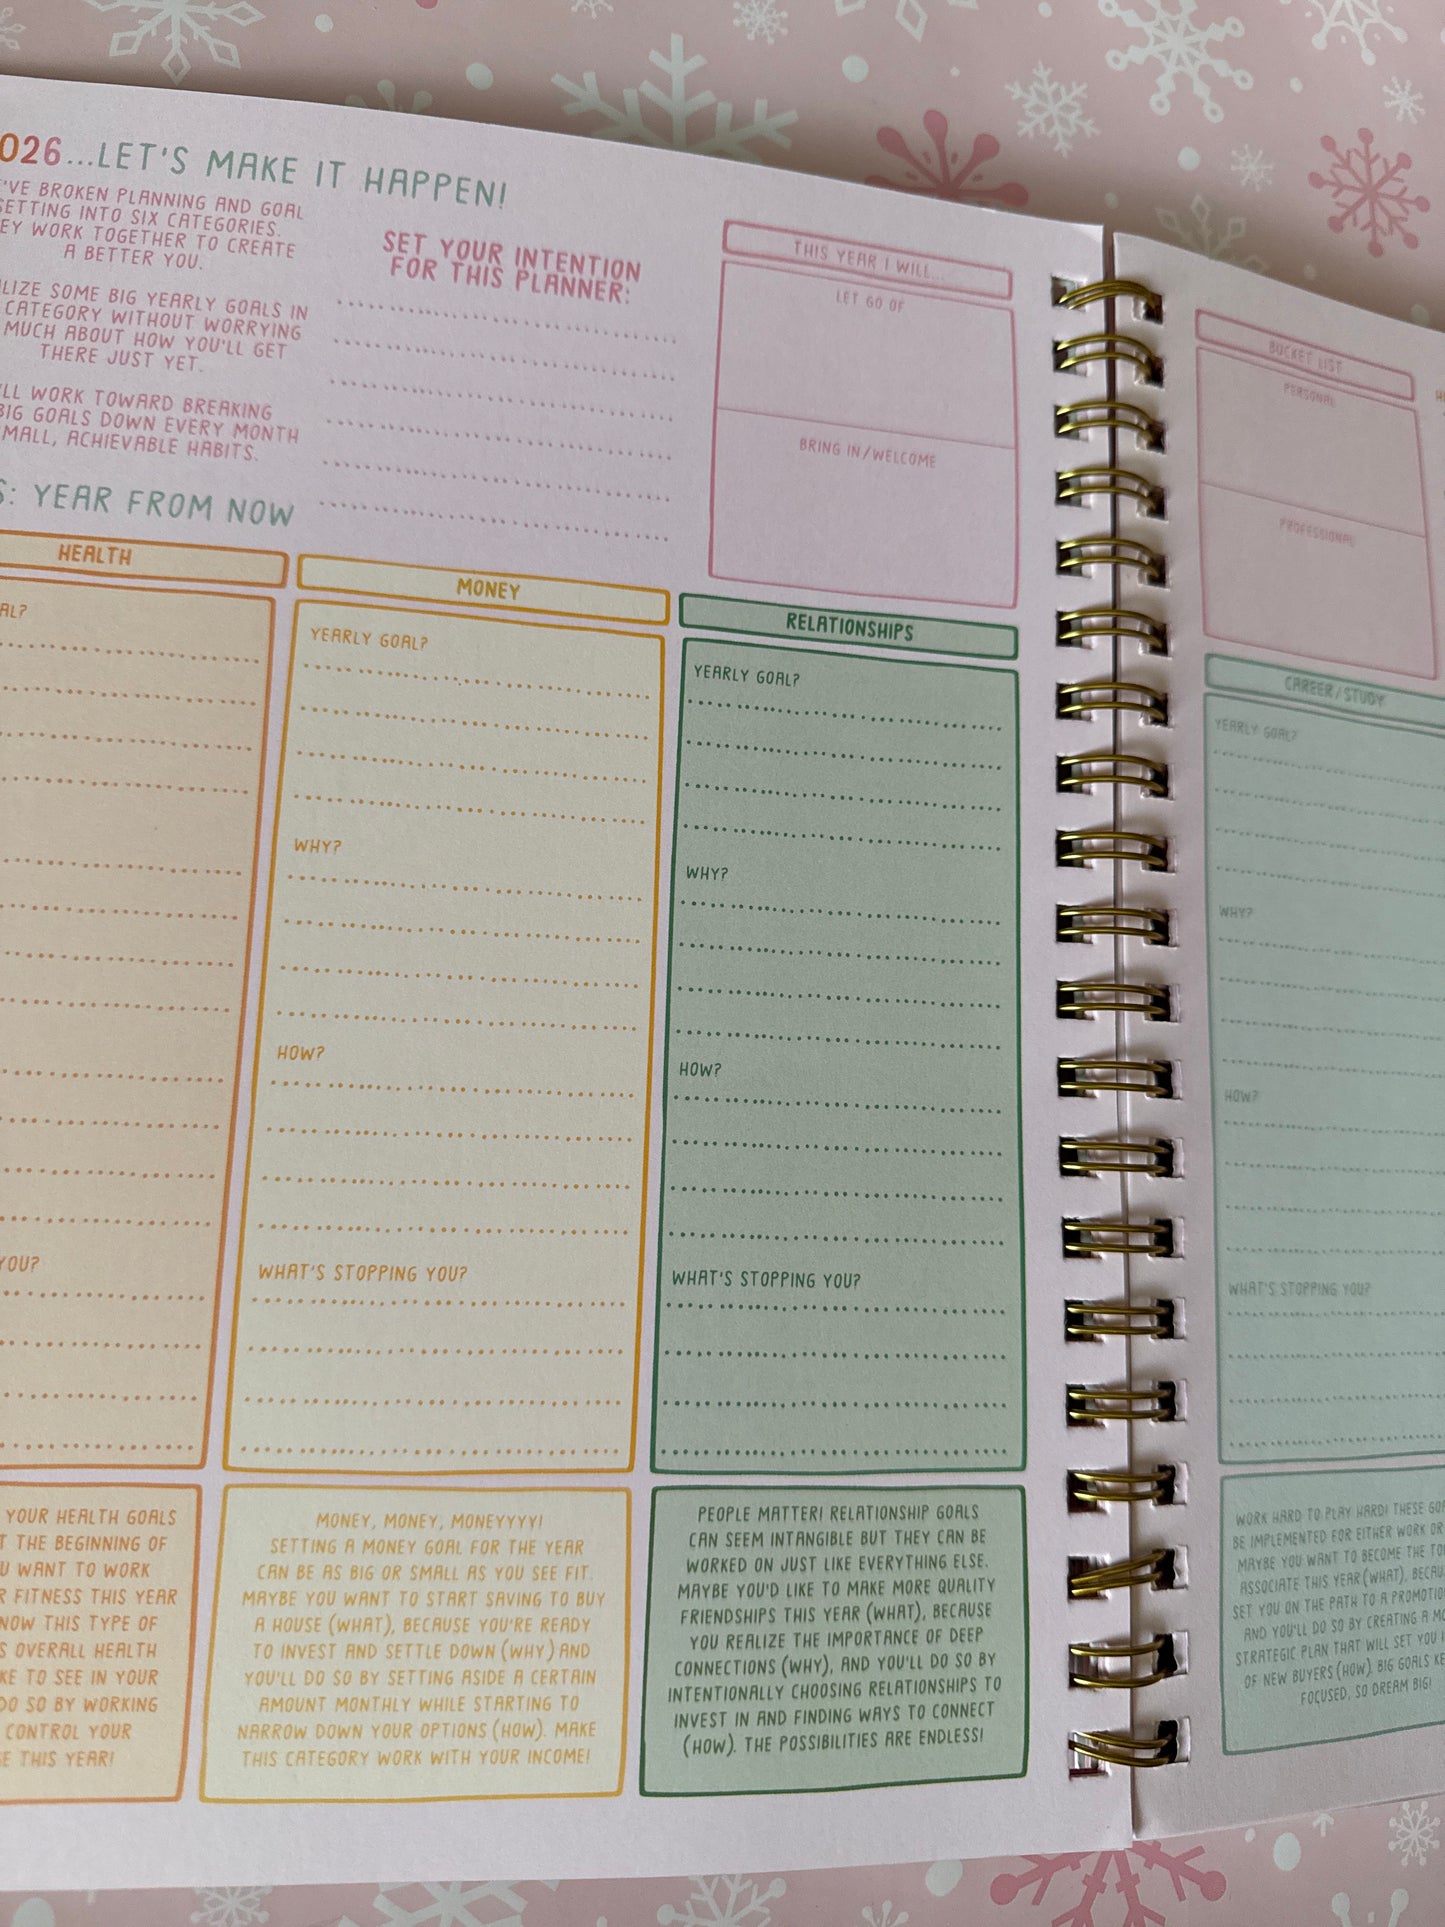 026...LET'S MAKE IT HAPPEN!
'VE BROKEN PLANNING AND GOAL
SETTING INTO SIX CATEGORIES.
EY WORK TOGETHER TO CREATE
A BETTER YOU.
LIZE SOME BIG YEARLY GOALS IN
CATEGORY WITHOUT WORRYING
MUCH ABOUT HOW YOU'LL GET
THERE JUST YET.
LL WORK TOWARD BREAKING
BIG GOALS DOWN EVERY MONTH
MALL, ACHIEVABLE HABITS.
SET YOUR INTENTION
FOR THIS PLANNER:
THIS YEAR I WILL...
LET GO OF
BRING IN/WELCOME
S: YEAR FROM NOW
HEALTH
AL?
YOU?
YOUR HEALTH GOALS
T THE BEGINNING OF
U WANT TO WORK
R FITNESS THIS YEAR
NOW THIS TYPE OF
S OVERALL HEALTH
KE TO SEE IN YOUR
DO SO BY WORKING
CONTROL YOUR
E THIS YEAR!
MONEY
YEARLY GOAL?
WHY?
HOW?
WHAT'S STOPPING YOU?
MONEY, MONEY, MONEYYYY!
SETTING A MONEY GOAL FOR THE YEAR
CAN BE AS BIG OR SMALL AS YOU SEE FIT.
MAYBE YOU WANT TO START SAVING TO BUY
A HOUSE (WHAT), BECAUSE YOU'RE READY
TO INVEST AND SETTLE DOWN (WHY) AND
YOU'LL DO SO BY SETTING ASIDE A CERTAIN
AMOUNT MONTHLY WHILE STARTING TO
NARROW DOWN YOUR OPTIONS (HOW). MAKE
THIS CATEGORY WORK WITH YOUR INCOME!
RELATIONSHIPS
YEARLY GOAL?
WHY?
HOW?
WHAT'S STOPPING YOU?
PEOPLE MATTER! RELATIONSHIP GOALS
CAN SEEM INTANGIBLE BUT THEY CAN BE
WORKED ON JUST LIKE EVERYTHING ELSE.
MAYBE YOU'D LIKE TO MAKE MORE QUALITY
FRIENDSHIPS THIS YEAR (WHAT), BECAUSE
YOU REALIZE THE IMPORTANCE OF DEEP
CONNECTIONS (WHY), AND YOU'LL DO SO BY
INTENTIONALLY CHOOSING RELATIONSHIPS TO
INVEST IN AND FINDING WAYS TO CONNECT
(HOW). THE POSSIBILITIES ARE ENDLESS!
BUCKET LIST
PERSONAL
PROFESSIONAL
CAREER/STUDY
YEARLY GOAL?
WHY?
HOW?
WHAT'S STOPPING YOU?
WORK HARD TO PLAY HARD! THESE GO
BE IMPLEMENTED FOR EITHER WORK OR
MAYBE YOU WANT TO BECOME THE TO
ASSOCIATE THIS YEAR (WHAT), BECAU
SET YOU ON THE PATH TO A PROMOTIO
AND YOU'LL DO SO BY CREATING A MO
STRATEGIC PLAN THAT WILL SET YOU
OF NEW BUYERS (HOW). BIG GOALS KE
FOCUSED, SO DREAM BIG!